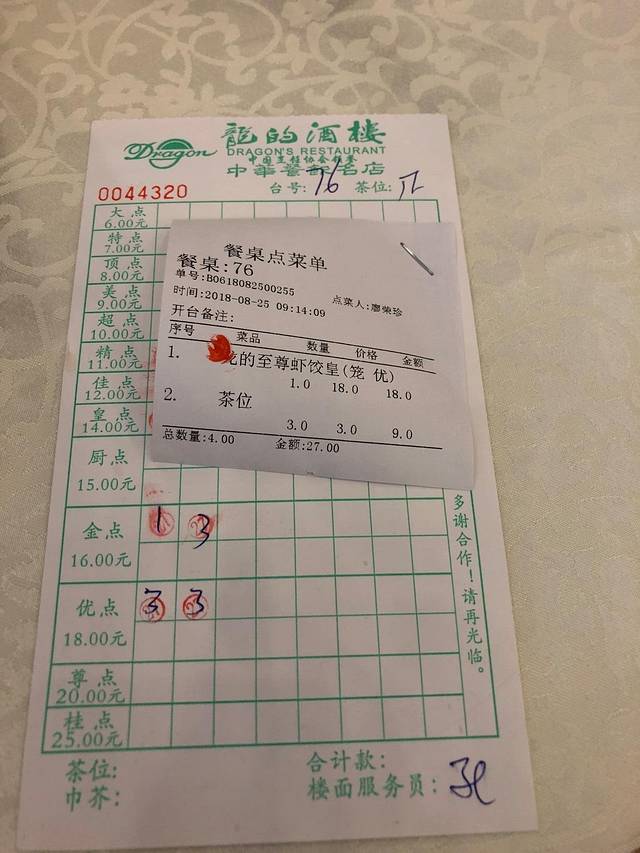 Dragon
龍的酒樓
DRAGON'S RESTAURANT
中國烹飪協會
中華餐飲名店
0044320
台号: 76 茶位:
大点
6.00元
特点
7.00元
顶点
8.00元
美点
9.00元
超点
10.00元
精点
11.00元
佳点
12.00元
皇点
14.00元
厨点
15.00元
金点 1 3
16.00元
优点 3 3
18.00元
尊点
20.00元
桂点
25.00元
餐桌点菜单
餐桌:76
单号:B0618082500255
点菜人:廖荣珍
时间:2018-08-25 09:14:09
开台备注:
序号 菜品 数量 价格 金额
1. 龙的至尊虾饺皇(笼 优)
1.0 18.0 18.0
2. 茶位
3.0 3.0 9.0
总数量:4.00 金额:27.00
多谢合作！请再光临。
茶位:
巾芥:
合计款:
楼面服务员: